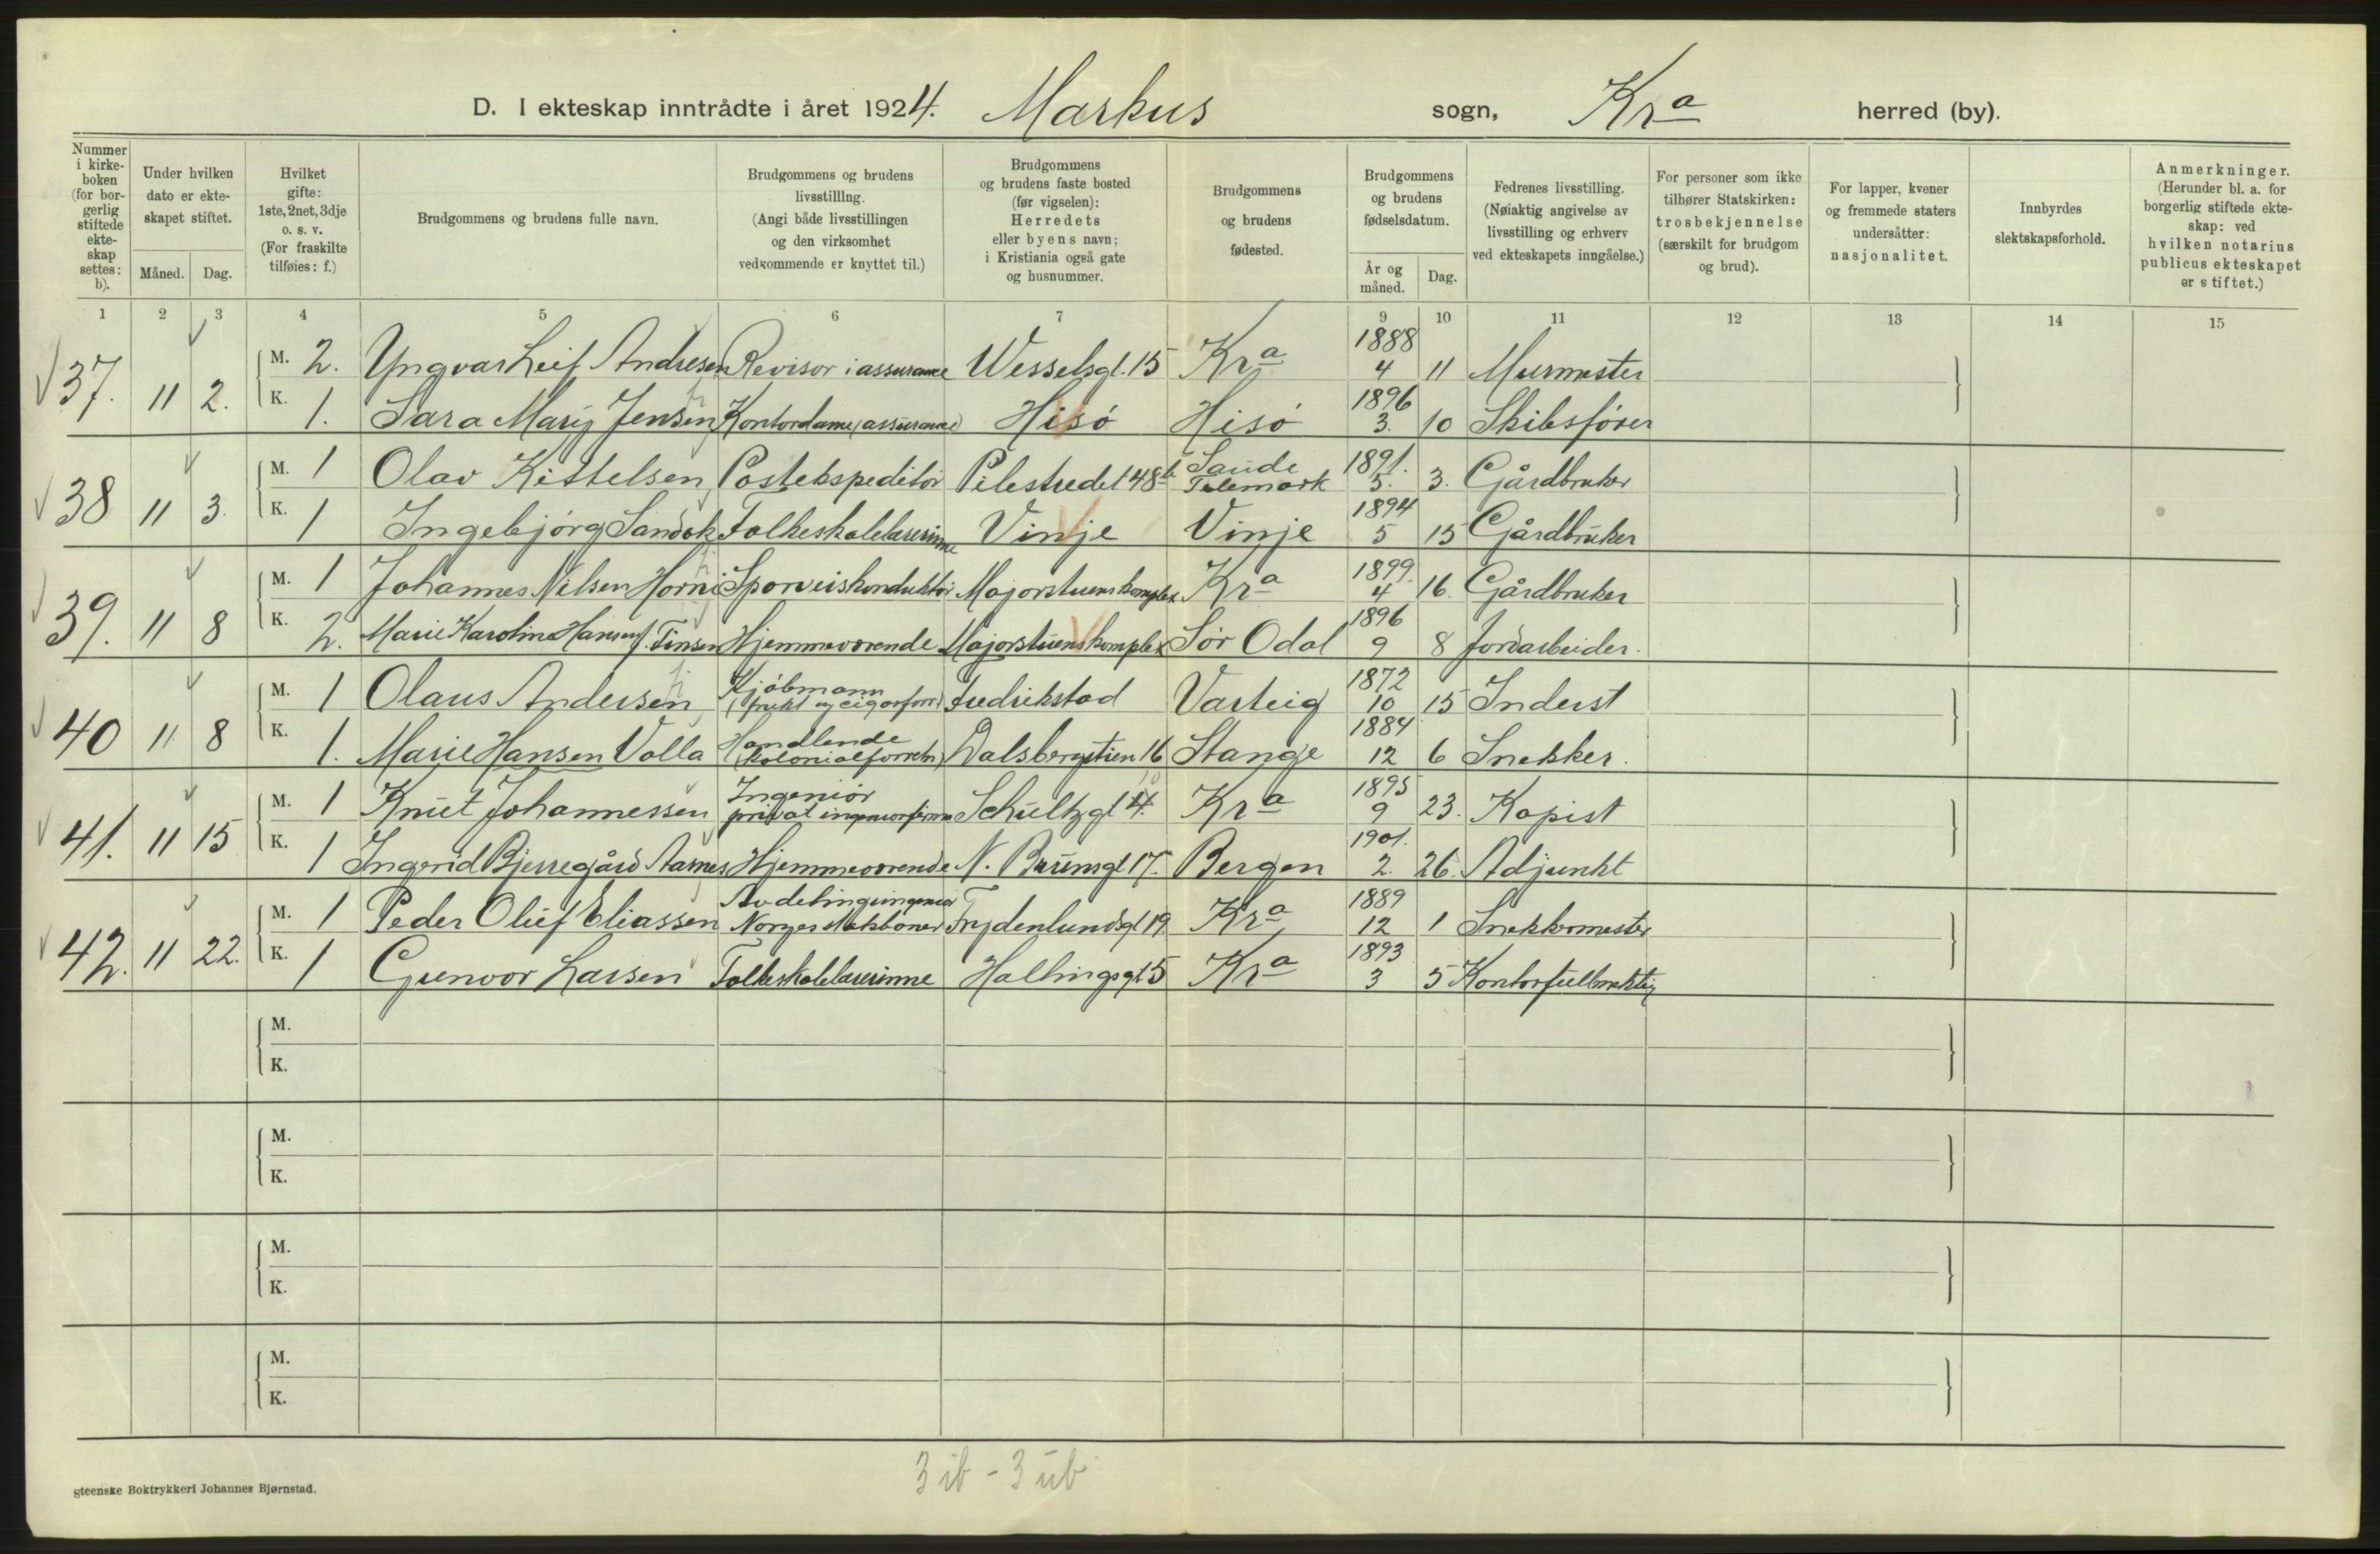 D. I ekteskap inntrådte i året 1924. Markus sogn, Kra herred (by).
Nummer i kirkeboken (for borgerlig stiftede ekteskap settes: b).
Under hvilken dato er ekteskapet stiftet.
Måned. Dag.
Hvilket gifte: 1ste, 2net, 3dje o. s. v. (For fraskilte tilføies: f.)
Brudgommens og brudens fulle navn.
Brudgommens og brudens livsstilling. (Angi både livsstillingen og den virksomhet vedkommende er knyttet til.)
Brudgommens og brudens faste bosted (før vigselen): Herredets eller byens navn; i Kristiania også gate og husnummer.
Brudgommens og brudens fødested.
Brudgommens og brudens fødselsdatum.
År og måned. Dag.
Fedrenes livsstilling. (Nøiaktig angivelse av livsstilling og erhverv ved ekteskapets inngåelse.)
For personer som ikke tilhører Statskirken: trosbekjennelse (særskilt for brudgom og brud).
For lapper, kvener og fremmede staters undersåtter: nasjonalitet.
Innbyrdes slektskapsforhold.
Anmerkninger. (Herunder bl. a. for borgerlig stiftede ekteskap: ved hvilken notarius publicus ekteskapet er stiftet.)
1 2 3 4 5 6 7 9 10 11 12 13 14 15
37. 11 2. M. 2. Yngvar Leif Andresen Revisor i assurance Wesselsgt. 15 Kra 1888 4 11 Murmester
K. 1. Sara Marij Jensen Kontordame (assurance) Hisö Hisö 1896 3. 10 Skibsfører
38 11 3. M. 1 Olav Kittelsen Postekspeditør Pilestredet 48b Saude Telemark 1891. 5. 3. Gårdbruker
K. 1 Ingebjörg Sandok Folkeskolelærerinne Vinje Vinje 1894 5 15 Gårdbruker
39. 11 8 M. 1 Johannes Nilsen Horni Sporveiskonduktør Majorstuens komplex Kra 1899. 4 16. Gårdbruker
K. 2. Marie Karoline Hansen f. Finsen Hjemmeværende Majorstuens komplex Sör Odal 1896 9 8 Jordarbeider.
40 11 8 M. 1 Olaus Andersen Kjöbmann (frukt og cigarforr.) Fredrikstad Varteig 1872 10 15 Inderst
K. 1. Marie Hansen Volla Handlende (kolonialforretn) Dalsbergstien 16 Stange 1884 12 6 Snekker.
41. 11 15 M. 1 Knut Johannessen Ingeniör privat ingeniørfirma Schultzgt Kra 1895 9 23. Kopist
K. 1 Ingerid Bjerregård Aarnes Hjemmeværende N. Bruunsgt 17. Bergen 1901. 2. 26. Adjunkt
42. 11 22. M. 1 Peder Oluf Eliassen Avdelingsingeniør Norges Statsbaner Frydenlundsgt 19. Kra 1889 12 1 Snekkermester
K. 1 Gunvor Larsen Folkeskolelærerinne Hallingsgt 5 Kra 1893 3 5 Kontorfullmektig
M.
K.
M.
K.
M.
K.
M.
K.
3 ib - 3 ub
gteenske Boktrykkeri Johannes Bjørnstad.